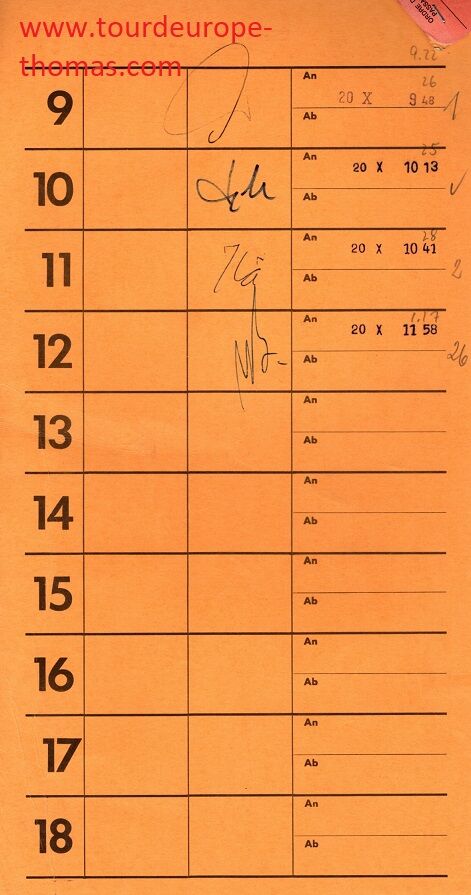 www.tourdeurope-
thomas.com
ORDRE D
PASS
9.22
9
An
26
20 X 9 48
1
Ab
10
An
25
20 X 10 13
Ab
11
An
28
20 X 10 41
2
Ab
12
An
1.17
20 X 11 58
26
Ab
13
An
Ab
14
An
Ab
15
An
Ab
16
An
Ab
17
An
Ab
18
An
Ab